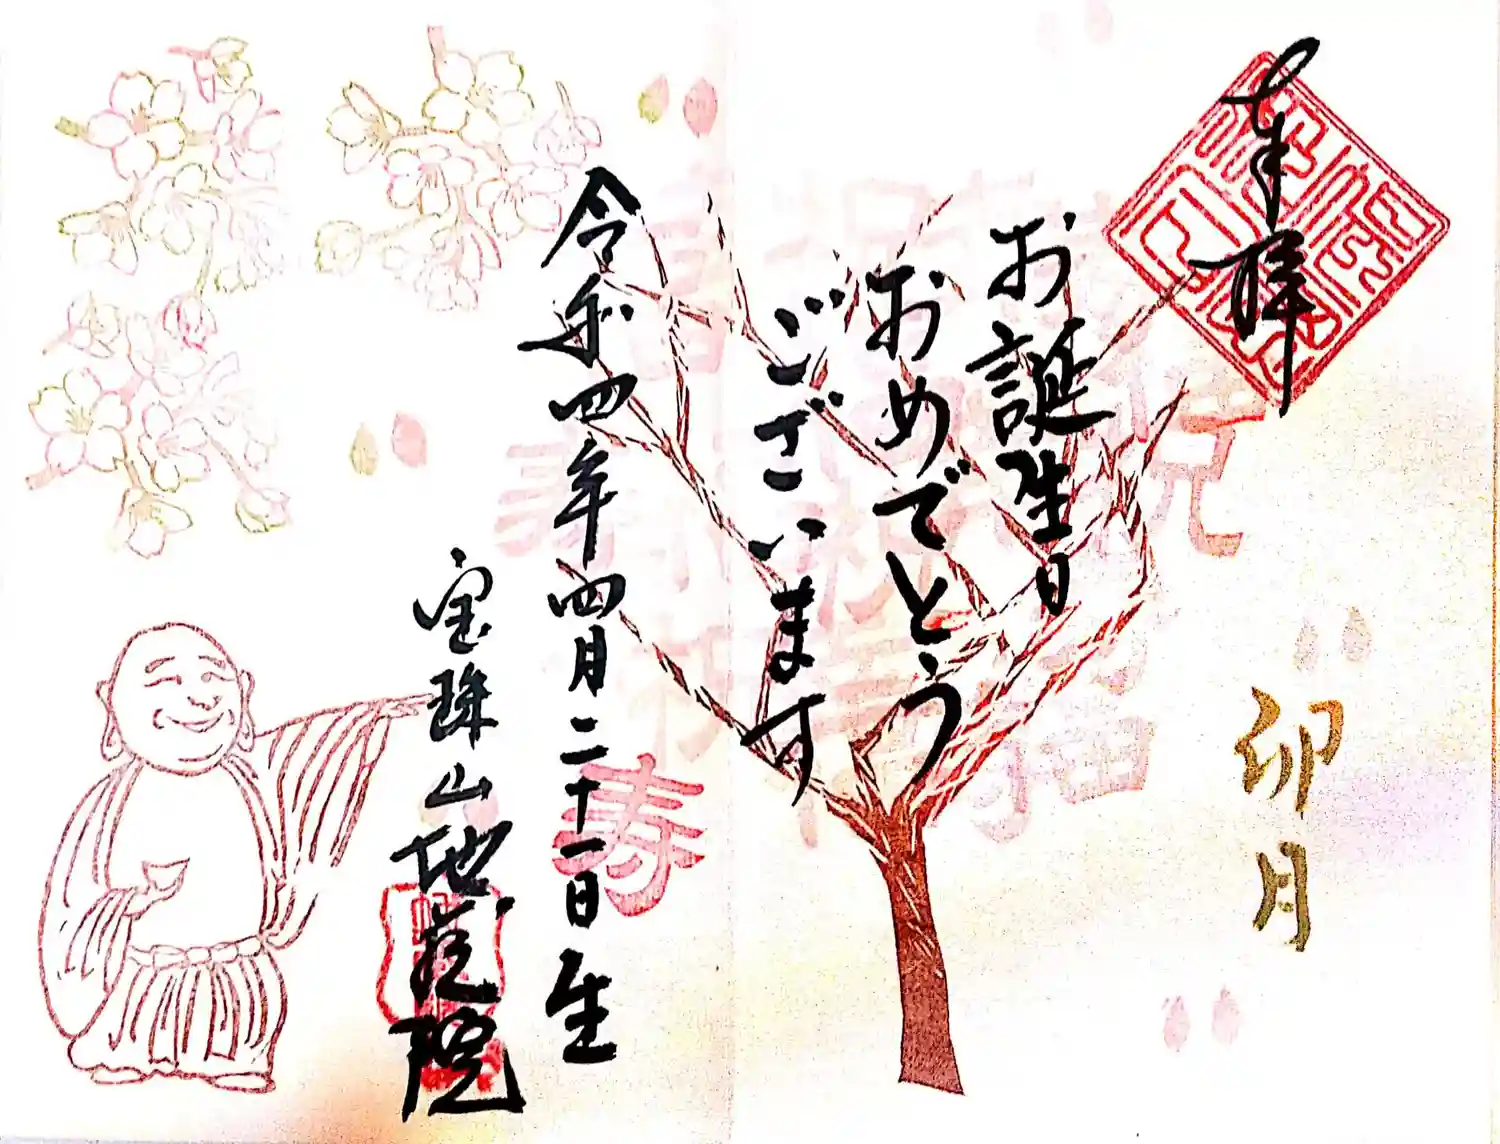 奉拝
卯月
お誕生日
おめでとう
ございます
令和四年四月二十一日生
宝珠山 地蔵院
寿
祝
福